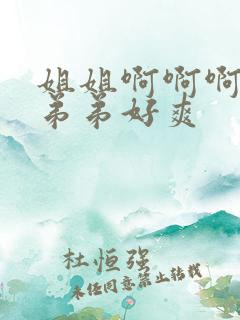 姐姐啊啊啊
弟弟好爽
杜恒强
未经同意禁止转载